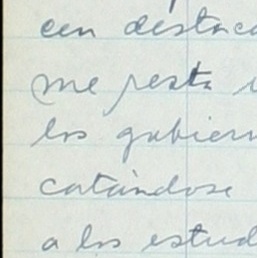 cen destaca
me resta
los gobiern
catándose
a los estud